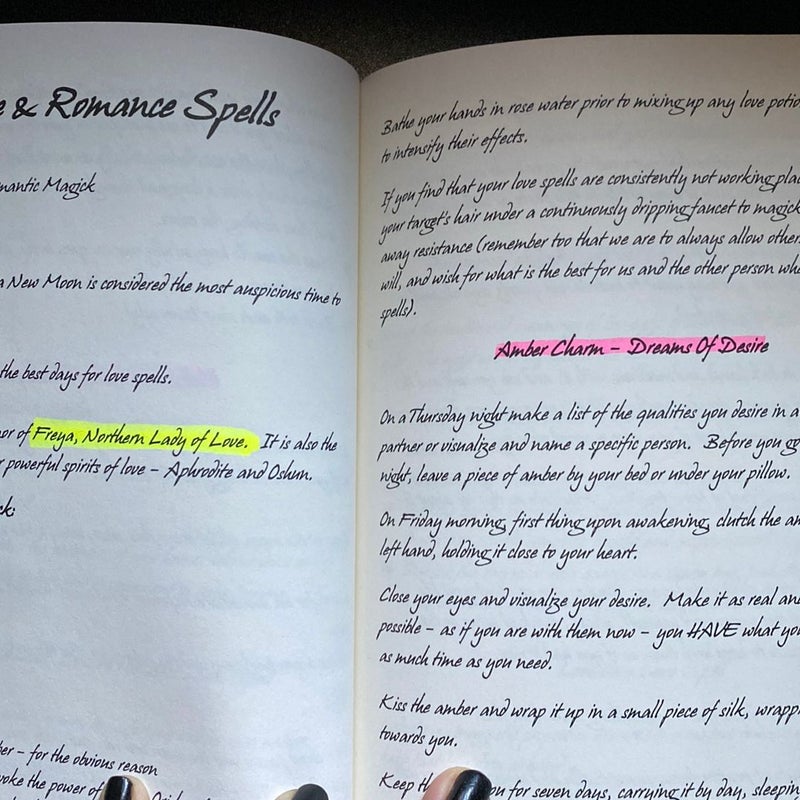 & Romance Spells
Magick
a New Moon is considered the most auspicious time to
the best days for love spells.
of Freya, Northern Lady of Love. It is also the
powerful spirits of love – Aphrodite and Oshun.
– for the obvious reason
the power of
Bathe your hands in rose water prior to mixing up any love
to intensify their effects.
If you find that your love spells are consistently not working
your target's hair under a continuously dripping faucet to
away resistance (remember too that we are to always allow
will, and wish for what is the best for us and the other person
spells).
Amber Charm – Dreams Of Desire
On a Thursday night make a list of the qualities you desire in a
partner or visualize and name a specific person. Before you
night, leave a piece of amber by your bed or under your pillow.
On Friday morning, first thing upon awakening, clutch the
left hand, holding it close to your heart.
Close your eyes and visualize your desire. Make it as real
possible – as if you are with them now – you HAVE what
as much time as you need.
Kiss the amber and wrap it up in a small piece of silk,
towards you.
Keep for seven days, carrying it by day,